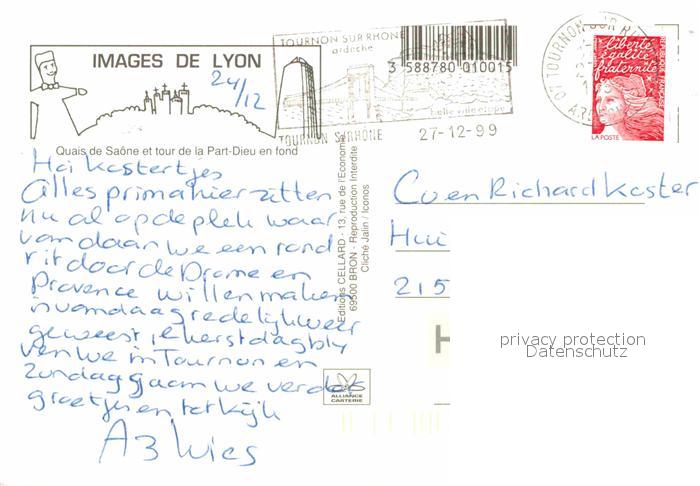 IMAGES DE LYON
24/12
TOURNON SUR RHONE
ardèche
3 588780 010015
belle
TOURNON S/RHÔNE
27-12-99
07 TOURNON-SUR-RH
liberté
égalité
fraternité
RÉPUBLIQUE FRANÇAISE
LA POSTE
Quais de Saône et tour de la Part-Dieu en fond
Hoi Kastertjes
Alles prima hier zitten
nu al op de plek waar
vandaan we een rond
rit door de Drome en
Provence willen maken
is vandaag redelijk weer
geweest, 1e kerstdag bly
ven we in Tournon en
zondag gaan we verder
groetjes en tot kijk
Editions CELLARD - 13, rue de l'Economie
69500 BRON - Reproduction Interdite
Cliché Jalin / Iconos
ALLIANCE
CARTERIE
Co en Richard Kaster
215
H
privacy protection
Datenschutz